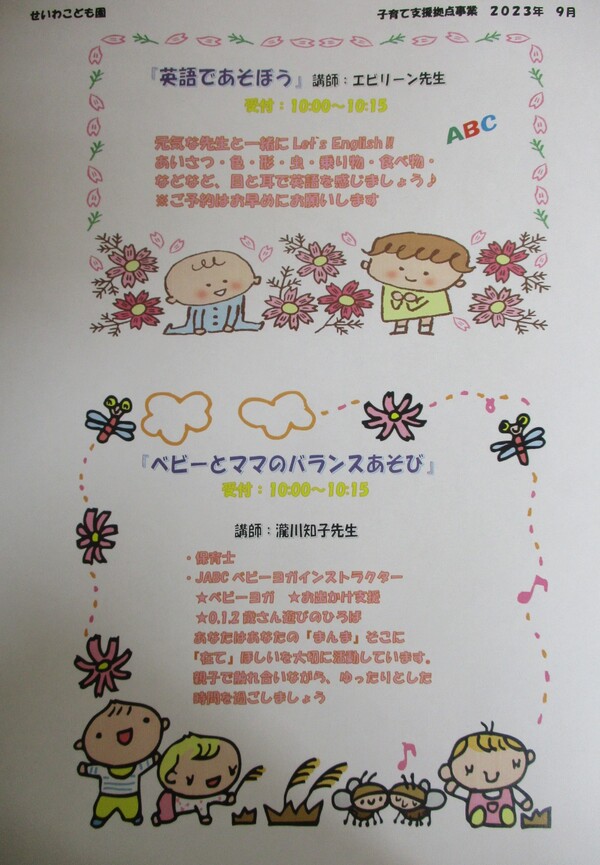 せいわこども園
子育て支援拠点事業 2023年 9月
『英語であそぼう』講師：エビリーン先生
受付：10:00～10:15
ABC
元気な先生と一緒に Let's English!!
あいさつ・色・形・虫・乗り物・食べ物・
などなど、目と耳で英語を感じましょう♪
※ご予約はお早めにお願いします
『ベビーとママのバランスあそび』
受付：10:00～10:15
講師：瀧川知子先生
・保育士
・JABCベビーヨガインストラクター
★ベビーヨガ ★お出かけ支援
★0.1.2歳さん遊びのひろば
あなたはあなたの「まんま」そこに
「在て」ほしいを大切に活動しています。
親子で触れ合いながら、ゆったりとした
時間を過ごしましょう